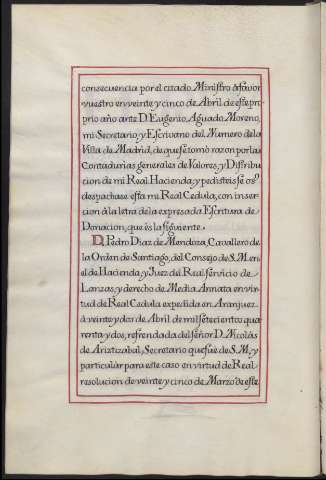 consecuencia por el citado Ministro à favor
vuestro en veinte y cinco de Abril de este pro
prio año ante D. Eugenio Aguado Moreno,
mi Secretario, y Escrivano del Numero de la
Villa de Madrid, de que se tomò razon por las
Contadurias generales de Valores, y Distribu
cion de mi Real Hacienda, y pedisteis se os
despachase esta mi Real Cedula, con inser
cion à la letra de la expresada Escritura de
Donacion, que és la siguiente.
D. Pedro Diaz de Mendoza, Cavallero de
la Orden de Santiago, del Consejo de S. M. en
el de Hacienda, y Juez del Real servicio de
Lanzas, y derecho de Media Annata en vir
tud de Real Cadula expedida en Aranjuez
à veinte y dos de Abril de mil setecientos qua
renta y dos, refrendada del señor D. Nicolàs
de Ariztizabal, Secretario que fue de S. M. y
particular para este caso en virtud de Real
resolucion de veinte y cinco de Marzo de este